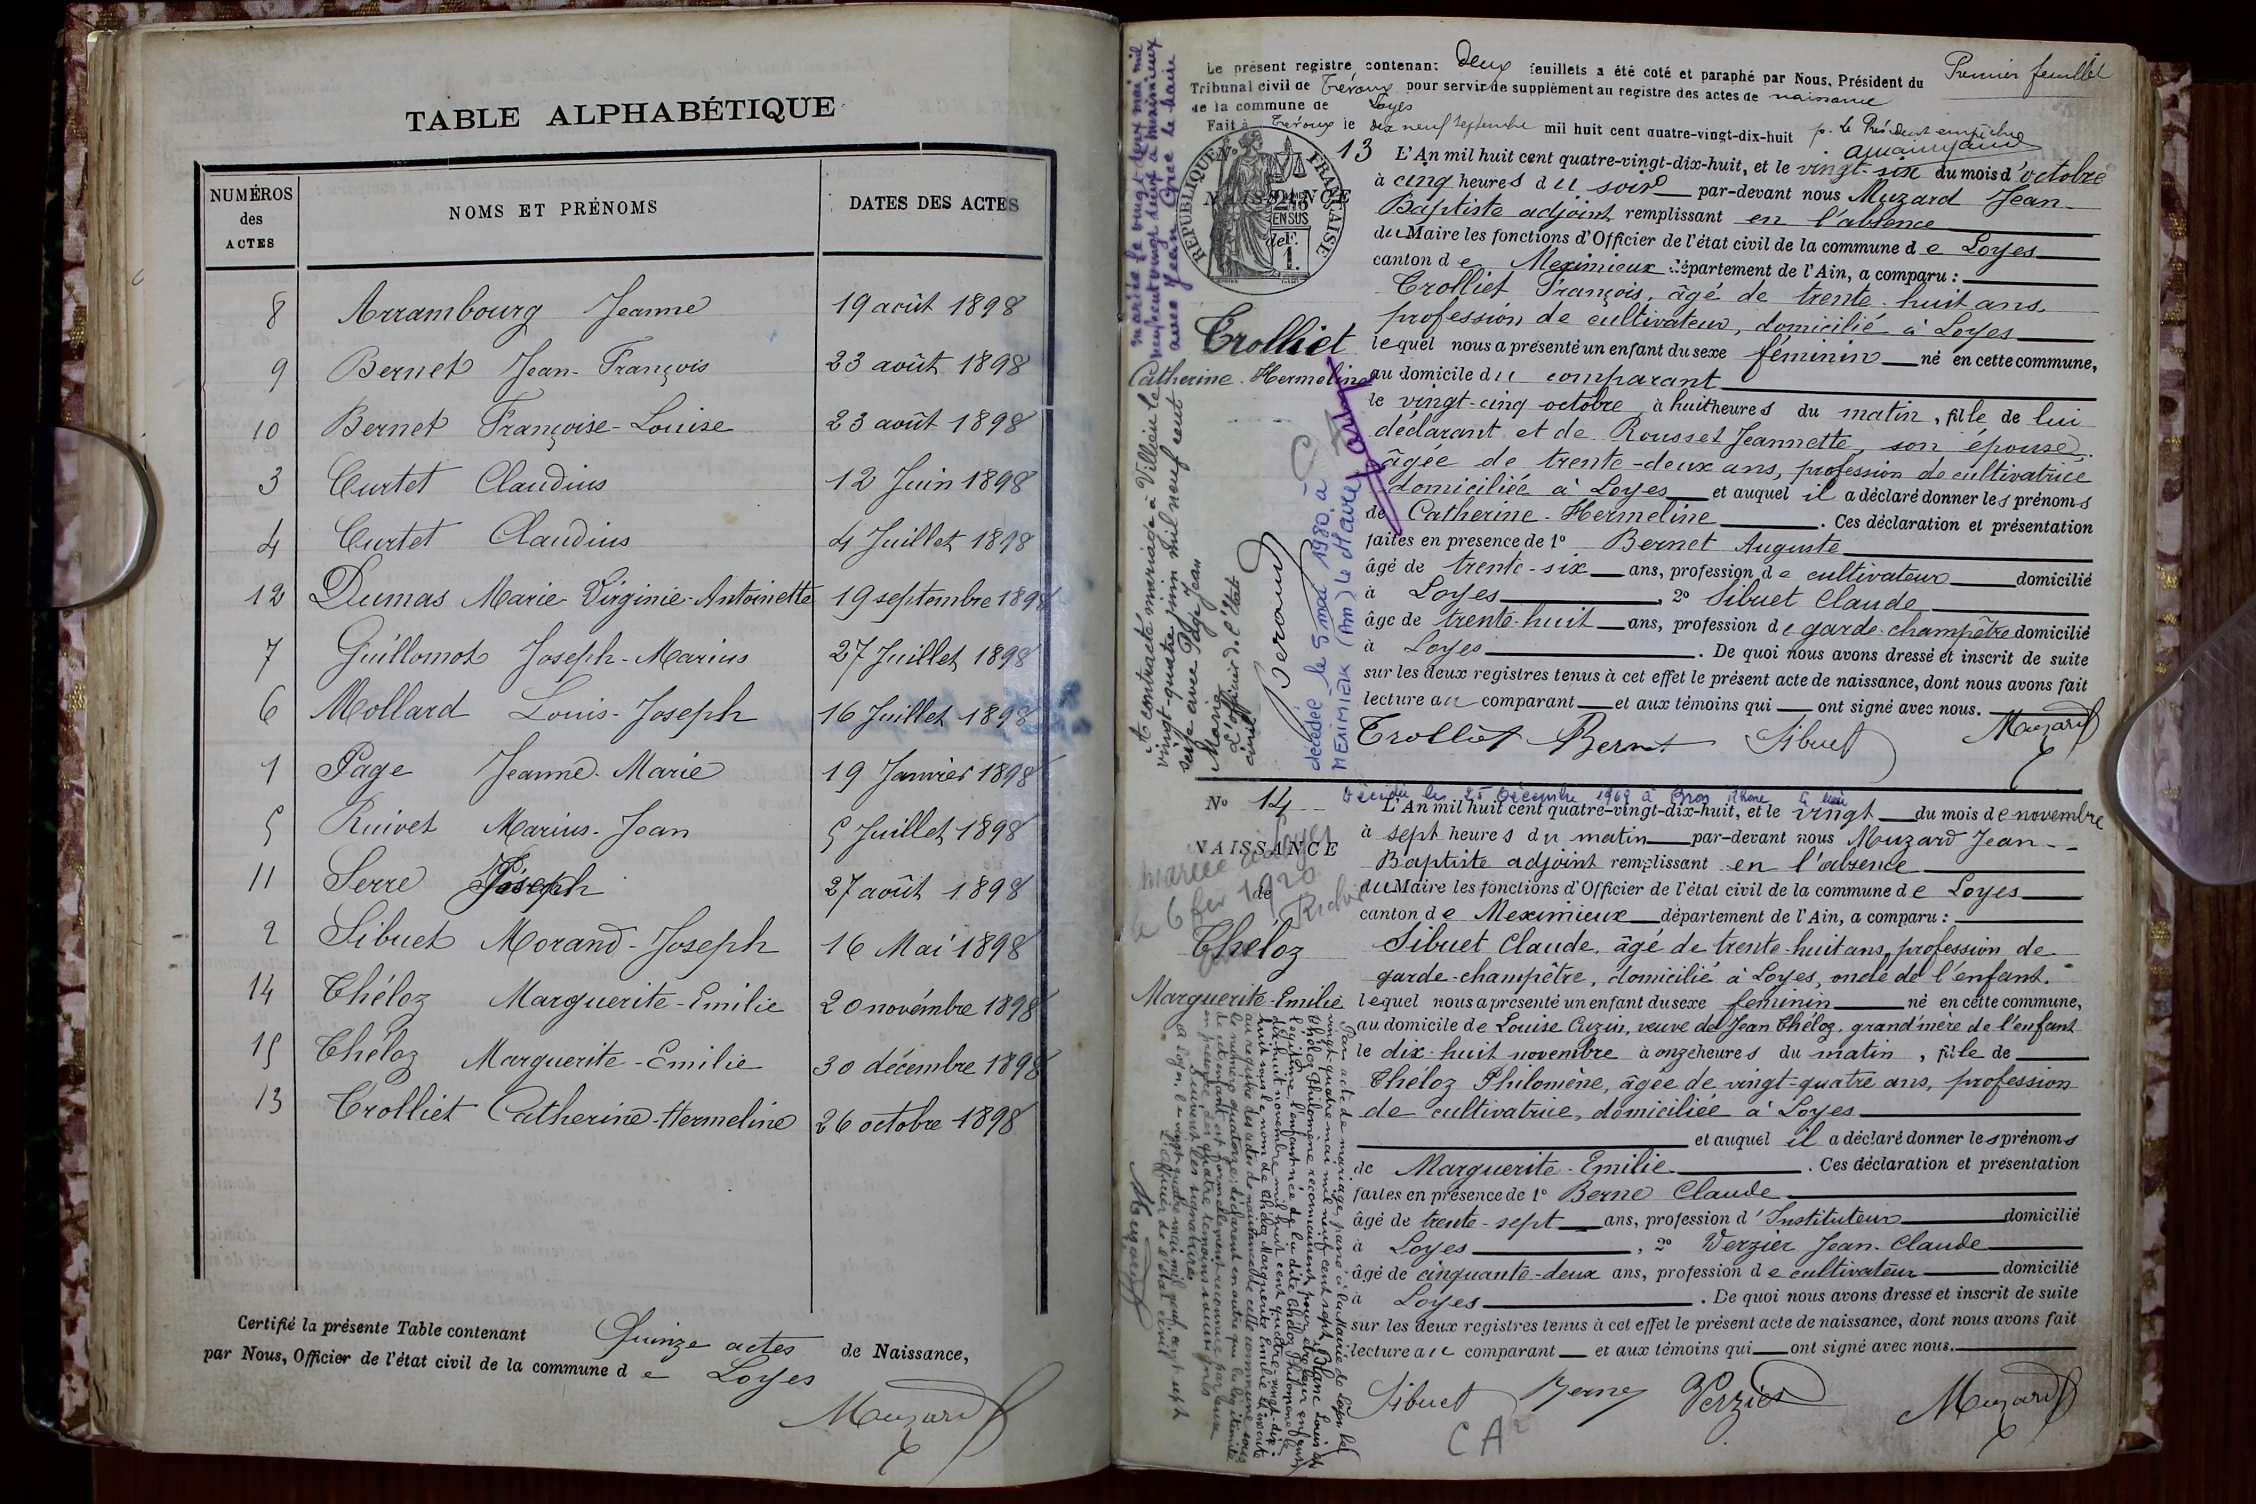 TABLE ALPHABÉTIQUE
NUMÉROS des ACTES
NOMS ET PRÉNOMS
DATES DES ACTES
8 Arrambourg Jeanne 19 août 1898
9 Bernet Jean-François 23 août 1898
10 Bernet Françoise-Louise 23 août 1898
3 Curtet Claudius 12 Juin 1898
4 Curtet Claudius 4 Juillet 1898
12 Dumas Marie Virginie-Antoinette 19 septembre 1898
7 Guillomot Joseph-Marius 27 Juillet 1898
6 Mollard Louis-Joseph 16 Juillet 1898
1 Page Jeanne-Marie 19 Janvier 1898
5 Ruivet Marius-Jean 5 Juillet 1898
11 Serre Joseph 27 août 1898
2 Sibuet Morand-Joseph 16 Mai 1898
14 Théloz Marguerite-Emilie 20 novembre 1898
15 Théloz Marguerite-Emilie 30 décembre 1898
13 Trolliet Catherine-Hermeline 26 octobre 1898
Certifié la présente Table contenant Quinze actes de Naissance,
par Nous, Officier de l'état civil de la commune de Loyes
Muzard
Premier feuillet
Le présent registre contenant deux feuillets a été coté et paraphé par Nous, Président du
Tribunal civil de Trévoux pour servir de supplément au registre des actes de naissance
de la commune de Loyes
Fait à Trévoux le dix neuf septembre mil huit cent quatre-vingt-dix-huit p. le Président empêché
RÉPUBLIQUE FRANÇAISE
2/10 EN SUS
de F.
1.
No 13
NAISSANCE
Trolliet
Catherine-Hermeline
L'An mil huit cent quatre-vingt-dix-huit, et le vingt-six du mois d'octobre
à cinq heures du soir par-devant nous Muzard Jean-
Baptiste adjoint remplissant en l'absence
du Maire les fonctions d'Officier de l'état civil de la commune de Loyes
canton de Meximieux département de l'Ain, a comparu :
Trolliet François, âgé de trente-huit ans,
profession de cultivateur, domicilié à Loyes
lequel nous a présenté un enfant du sexe féminin né en cette commune,
au domicile du comparant
le vingt-cinq octobre à huit heures du matin, fille de lui
déclarant et de Rousset Jeannette, son épouse,
âgée de trente-deux ans, profession de cultivatrice
domiciliée à Loyes et auquel il a déclaré donner les prénoms
de Catherine-Hermeline. Ces déclaration et présentation
faites en présence de 1° Bernet Auguste
âgé de trente-six ans, profession de cultivateur domicilié
à Loyes, 2° Sibuet Claude
âgé de trente-huit ans, profession de garde-champêtre domicilié
à Loyes. De quoi nous avons dressé et inscrit de suite
sur les deux registres tenus à cet effet le présent acte de naissance, dont nous avons fait
lecture au comparant et aux témoins qui ont signé avec nous.
Trolliet Bernet Sibuet Muzard
mariée le vingt deux mai mil
neuf cent vingt deux à Meximieux
avec Jean
A contracté mariage à Villieu le
vingt-quatre juin mil neuf cent
avec Page Jean
L'officier de l'état
civil
décédée le 5 mai 1980 à
MEXIMIEUX (Ain) le Maire
No 14
NAISSANCE
de
Théloz
Marguerite-Emilie
mariée à Loyes
le 6 fev 1920
Décédée le 25 Décembre 1969 à Bron Rhône
L'An mil huit cent quatre-vingt-dix-huit, et le vingt du mois de novembre
à sept heures du matin par-devant nous Muzard Jean-
Baptiste adjoint remplissant en l'absence
du Maire les fonctions d'Officier de l'état civil de la commune de Loyes
canton de Meximieux département de l'Ain, a comparu :
Sibuet Claude, âgé de trente-huit ans, profession de
garde-champêtre, domicilié à Loyes, oncle de l'enfant.
lequel nous a présenté un enfant du sexe féminin né en cette commune,
au domicile de Louise Cuzin, veuve de Jean Théloz, grand'mère de l'enfant
le dix-huit novembre à onze heures du matin, fille de
Théloz Philomène, âgée de vingt-quatre ans, profession
de cultivatrice, domiciliée à Loyes
et auquel il a déclaré donner les prénoms
de Marguerite-Emilie. Ces déclaration et présentation
faites en présence de 1° Berne Claude
âgé de trente-sept ans, profession d'Instituteur domicilié
à Loyes, 2° Verzier Jean-Claude
âgé de cinquante-deux ans, profession de cultivateur domicilié
à Loyes. De quoi nous avons dressé et inscrit de suite
sur les deux registres tenus à cet effet le présent acte de naissance, dont nous avons fait
lecture au comparant et aux témoins qui ont signé avec nous.
Sibuet Berne Verzier Muzard
CA
Par acte de mariage, passé à la Mairie de Loyes le
vingt-quatre mai mil neuf cent sept, Blanc Louis et
Théloz Philomène reconnaissent pour être leur enfant
légitime l'enfant née de la dite Théloz Philomène le
dix-huit novembre mil huit cent quatre-vingt-dix-
huit sous le nom de Théloz Marguerite Emilie et inscrite
au registre des actes de naissance de cette commune sous
le numéro quatorze
Loyes, le vingt-quatre mai mil neuf cent sept
L'officier de l'état civil
Muzard